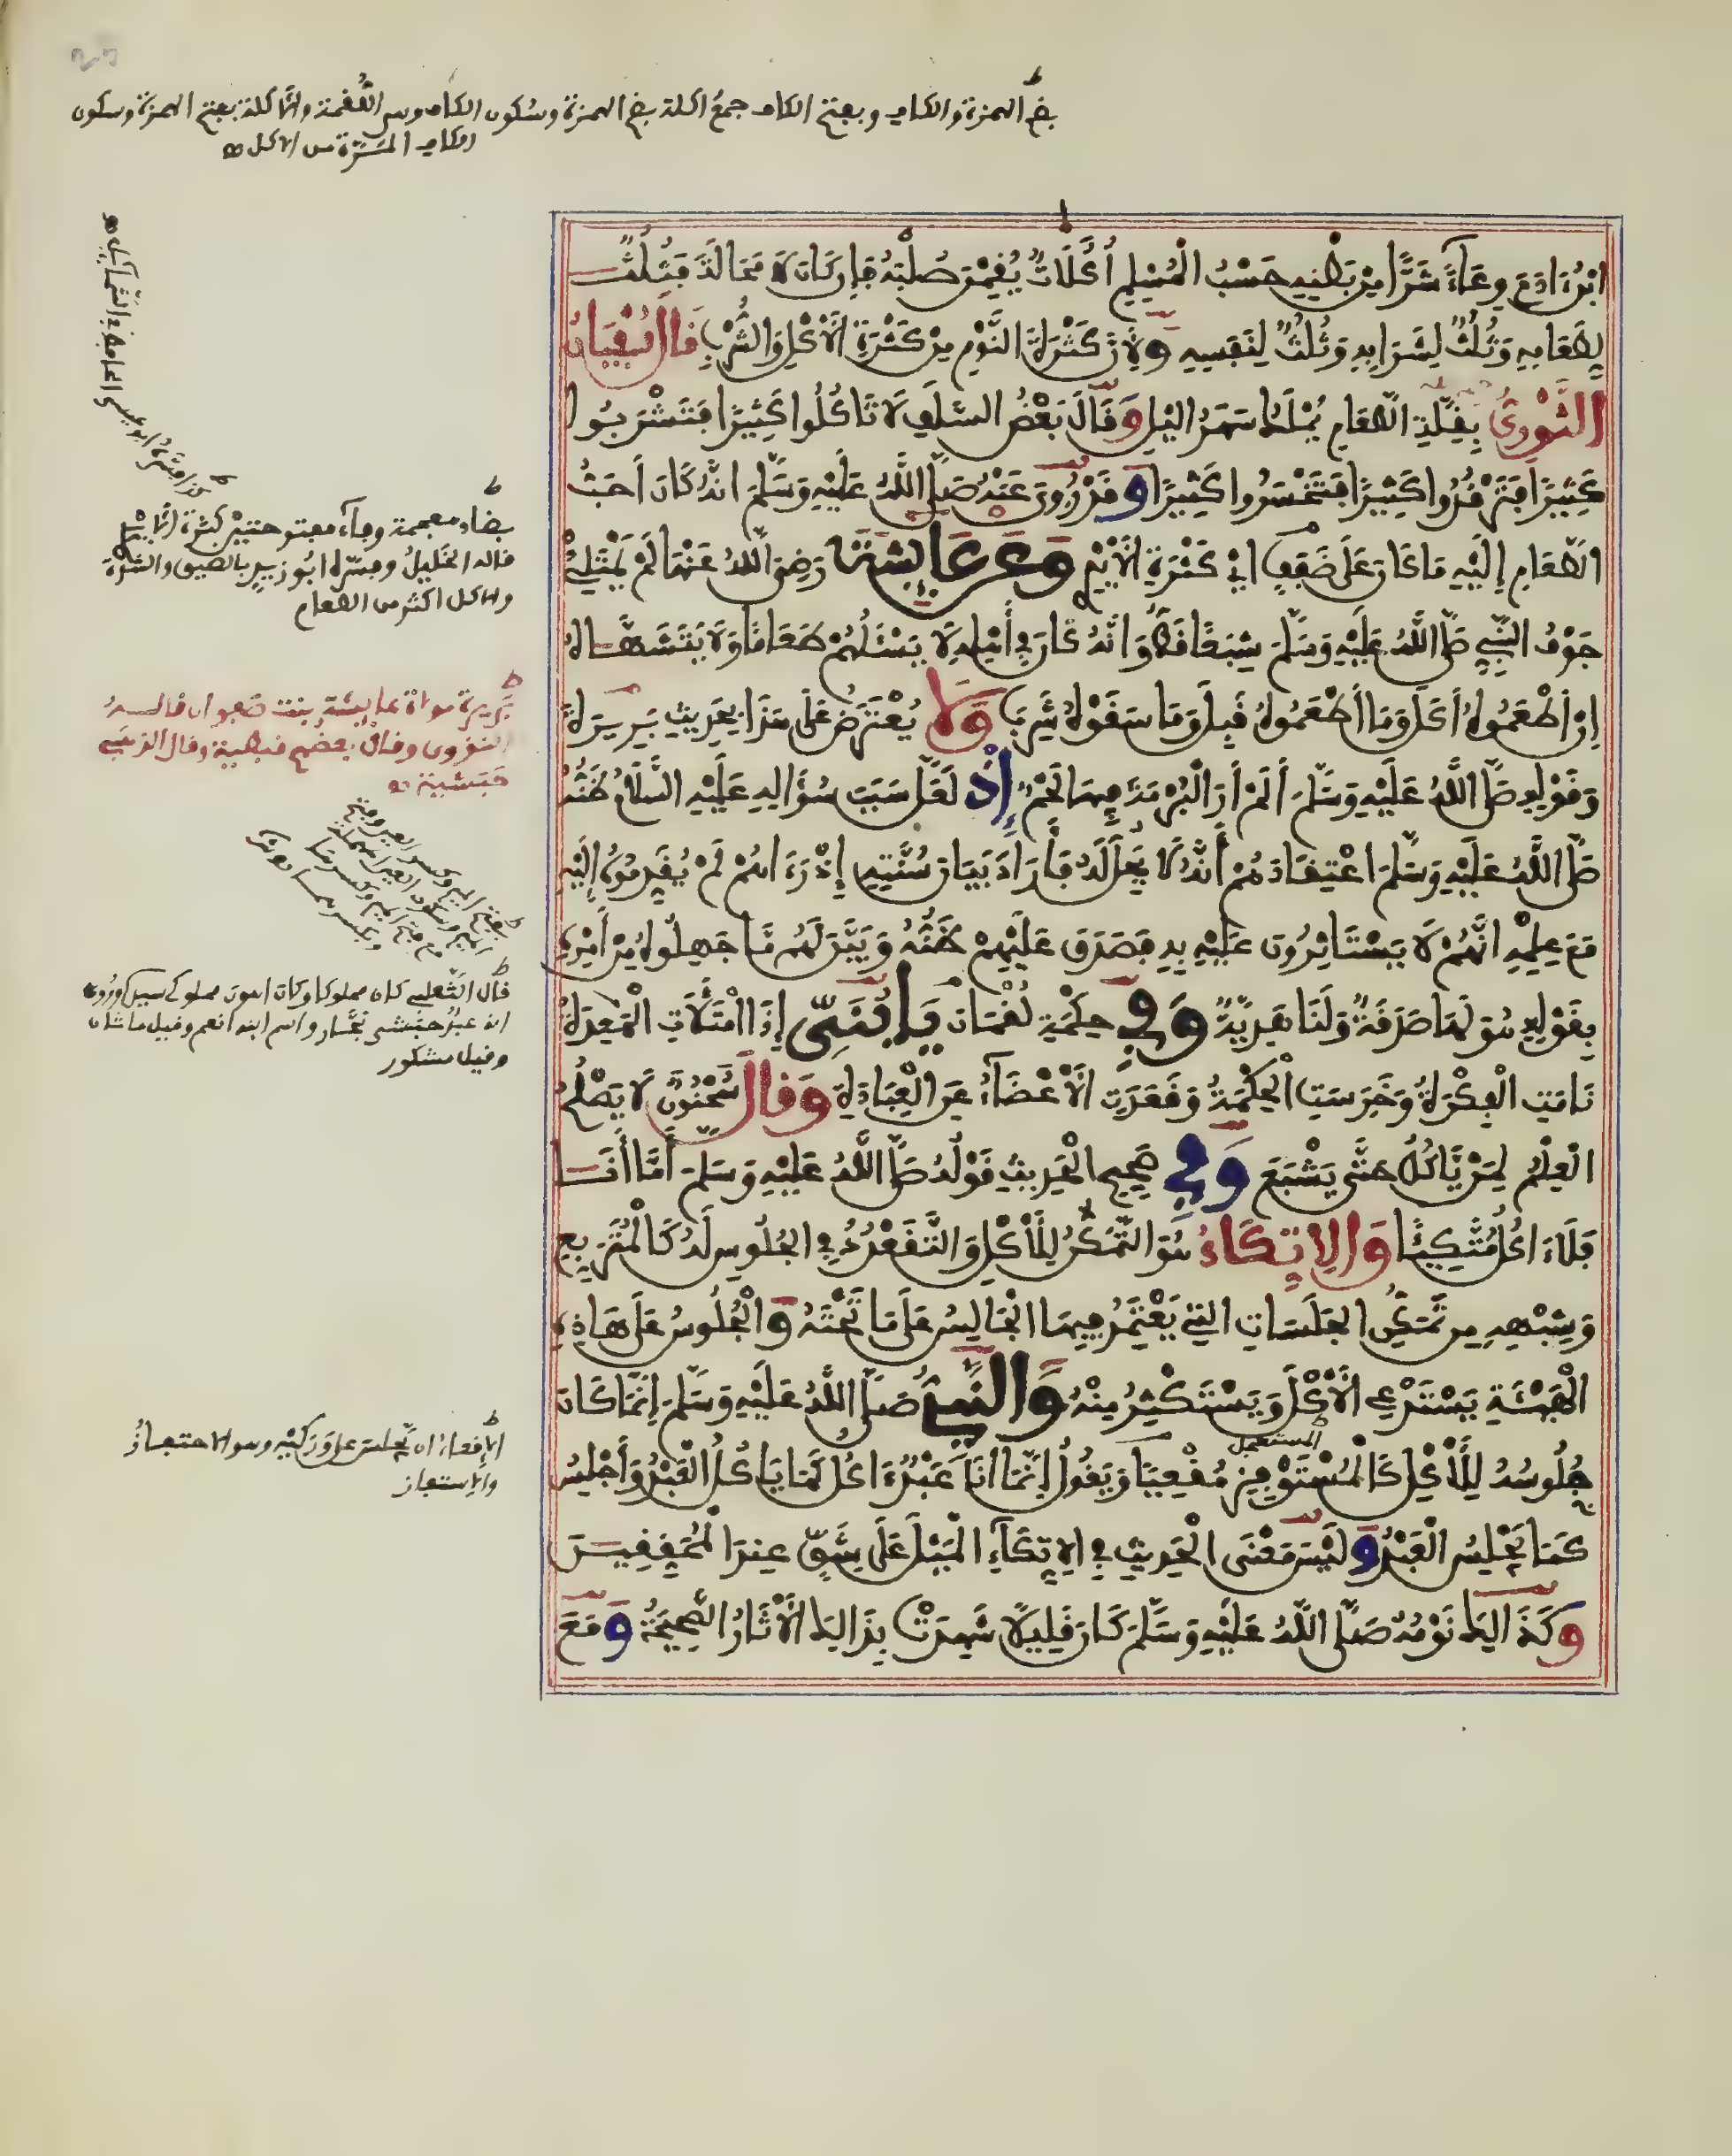 بضم الهمزة والكاف وبفتح الكاف جمع اكلة بضم الهمزة وسكون الكاف وهي اللقمة والاكلة بفتح الهمزة وسكون
الكاف المرة من الاكل
ابْنُ ءَادَمَ وِعَآءً شَرًّا مِنْ بَطْنِهِ حَسْبُ الْمُسْلِمِ أُكُلَاتٌ يُقِمْنَ صُلْبَهُ فَإِن كَانَ لَا مَحَالَةَ فَثُلُثٌ
لِطَعَامِهِ وَثُلُثٌ لِشَرَابِهِ وَثُلُثٌ لِنَفَسِهِ وَلِأَنَّ كَثْرَةَ النَّوْمِ مِنْ كَثْرَةِ الْأَكْلِ وَالشُّرْبِ قَالَ سُفْيَانُ
الثَّوْرِىُّ بِقِلَّةِ الطَّعَامِ يُمْلَكُ سَهَرُ اليْلِ وَقَالَ بَعْضُ السَّلَفِ لَا تَاكُلُوا كَثِيرًا فَتَشْرَبُوا
كَثِيرًا فَتَرْقُدُوا كَثِيرًا فَتَخْسَرُوا كَثِيرًا وَقَدْ رُوِىَ عَنْهُ صَلَّى اللَّهُ عَلَيْهِ وَسَلَّمَ انَّهُ كَانَ أَحَبُّ
الطَّعَامِ إِلَيْهِ مَا كَانَ عَلَى ضَفَفٍ ايْ كَثْرَةِ الْأَيْدِى وَعَنْ عَائِشَةَ رَضِىَ اللَّهُ عَنْهَا لَمْ يَمْتَلِئْ
جَوْفُ النَّبِيِّ صَلَّى اللَّهُ عَلَيْهِ وَسَلَّمَ شِبَعًا قَطُّ وَانَّهُ كَانَ فِي أَهْلِهِ لَا يَسْئَلُهُمْ طَعَامًا وَلَا يَتَشَهَّاهُ
إِنْ أَطْعَمُوهُ أَكَلَ وَمَا أَطْعَمُوهُ قَبِلَ وَمَا سَقَوْهُ شَرِبَ وَلَا يُعْتَرَضُ عَلَى هَذَا بِحَدِيثِ بَرِيرَةَ
وَقَوْلِهِ صَلَّى اللَّهُ عَلَيْهِ وَسَلَّمَ أَلَمْ أَرَ الْبُرْمَةَ فِيهَا لَحْمٌ إِذْ لَعَلَّ سَبَبَ سُؤَالِهِ عَلَيْهِ السَّلَامُ ظَنُّهُ
صَلَّى اللَّهُ عَلَيْهِ وَسَلَّمَ اعْتِقَادَهُمْ أَنَّهُ لَا يَحِلُّ لَهُ فَأَرَادَ بَيَانَ سُنَّتِهِ إِذْ رَءَاهُمْ لَمْ يُقَدِّمُوهُ إِلَيْهِ
مَعَ عِلْمِهِ انَّهُمْ لَا يَسْتَاثِرُونَ عَلَيْهِ بِهِ فَصَدَقَ عَلَيْهِمْ ظَنُّهُ وَبَيَّنَ لَهُم مَّا جَهِلُوهُ مِنْ أَمْرِهِ
بِقَوْلِهِ هُوَ لَهَا صَدَقَةٌ وَلَنَا هَدِيَّةٌ وَفِي حِكْمَةِ لُقْمَانَ يَا بُنَيِّ إِذَا امْتَلَأَتِ الْمَعِدَةُ
نَامَتِ الْفِكْرَةُ وَخَرِسَتِ الْحِكْمَةُ وَقَعَدَتِ الْأَعْضَآءُ عَنِ الْعِبَادَةِ وَقَالَ سُحْنُونٌ لَا يَصْلُحُ
الْعِلْمُ لِمَنْ يَّاكُلُ حَتَّى يَشْبَعَ وَفِي صَحِيحِ الْحَدِيثِ قَوْلُهُ صَلَّى اللَّهُ عَلَيْهِ وَسَلَّمَ أَمَّا أَنَا
فَلَا ءَاكُلُ مُتَّكِئًا وَالِاتِّكَاءُ هُوَ التَّمَكُّنُ لِلْأَكْلِ وَالتَّقَعْدُدُ فِي الجُلُوسِ لَهُ كَالْمُتَرَبِّعِ
وَشِبْهِهِ مِن تَمَكُّنِ الجَلَسَاتِ التِي يَعْتَمِدُ فِيهَا الْجَالِسُ عَلَى مَا تَحْتَهُ وَالْجُلُوسُ عَلَى هَاذِهِ
الْهَيْئَةِ يَسْتَدْعِي الْأَكْلَ وَيَسْتَكْثِرُ مِنْهُ وَالنَّبِيُّ صَلَّى اللَّهُ عَلَيْهِ وَسَلَّمَ إِنَّمَا كَانَ
المستعجل
جُلُوسُهُ لِلْأَكْلِ كَالْمُسْتَوْفِزِ مُقْعِيًا وَيَقُولُ إِنَّمَا أَنَا عَبْدٌ ءَاكُلُ كَمَا يَاكُلُ الْعَبْدُ وَأَجْلِسُ
كَمَا يَجْلِسُ الْعَبْدُ وَلَيْسَ مَعْنَى الْحَدِيثِ فِي الِاتِّكَآءِ الْمَيْلَ عَلَى شِقٍّ عِندَ الْمُحَقِّقِينَ
وَكَذَالِكَ نَوْمُهُ صَلَّى اللَّهُ عَلَيْهِ وَسَلَّمَ كَانَ قَلِيلًا شَهِدَتْ بِذَالِكَ الْأَثَارُ الصَّحِيحَةُ وَمَعَ
كذا فسره ابو عيسى الحافظ في الشمائل
بضاد معجمة وفاء مفتوحتين كثرة الايدي
قاله الخليل وفسره ابو زيد بالضيق والشدة
والاكل اكثر من الطعام
بريرة مولاة عايشة بنت صفوان قاله
النووي وقال بعضهم قبطية وقال الذهبي
حبشية
بفتح الميم وكسر العين وفتح
الميم وسكون العين المهملة
قال الثعلبي كان مملوكا وكان اهون مملوك سيده
انه عبد حبشي نجار واسم ابنه انعم وقيل ماثان
وقيل مشكور
الاقعاء ان يجلس على وركيه وهو الاحتفاز
والاستفاز